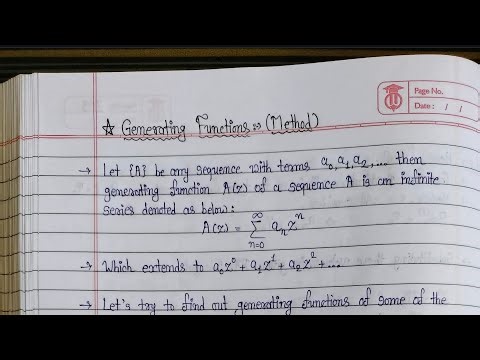 Page No.
Date: / /
☆ Generating Functions :- (Method)
→ Let {A} be any sequence with terms a₀, a₁, a₂, .... then
generating function A(z) of a sequence A is an infinite
series denoted as below:
A(z) = ∑_{n=0}^{∞} aₙzⁿ
→ Which extends to a₀z⁰ + a₁z¹ + a₂z² + ...
→ Let's try to find out generating functions of some of the